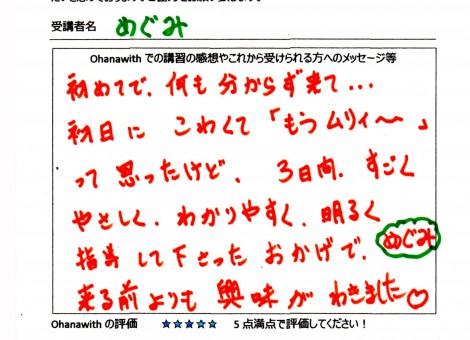 受講者名 めぐみ
Ohanawith での講習の感想やこれから受けられる方へのメッセージ等
初めてで、何も分からず来て...
初日に こわくて「もうムリィ〜」
って思ったけど、3日間、すごく
やさしく、わかりやすく、明るく
指導して下さったおかげで、
めぐみ
来る前よりも興味がわきました♡
Ohanawith の評価 ★★★★★ 5点満点で評価してください！